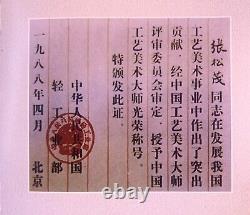 张松茂 同志在发展我国
工艺美术事业中作出了突出
贡献，经中国工艺美术大师
评审委员会审定，授予中国
工艺美术大师光荣称号，
特颁发此证。
中华人民共和国
轻工业部
一九八八年四月 北京